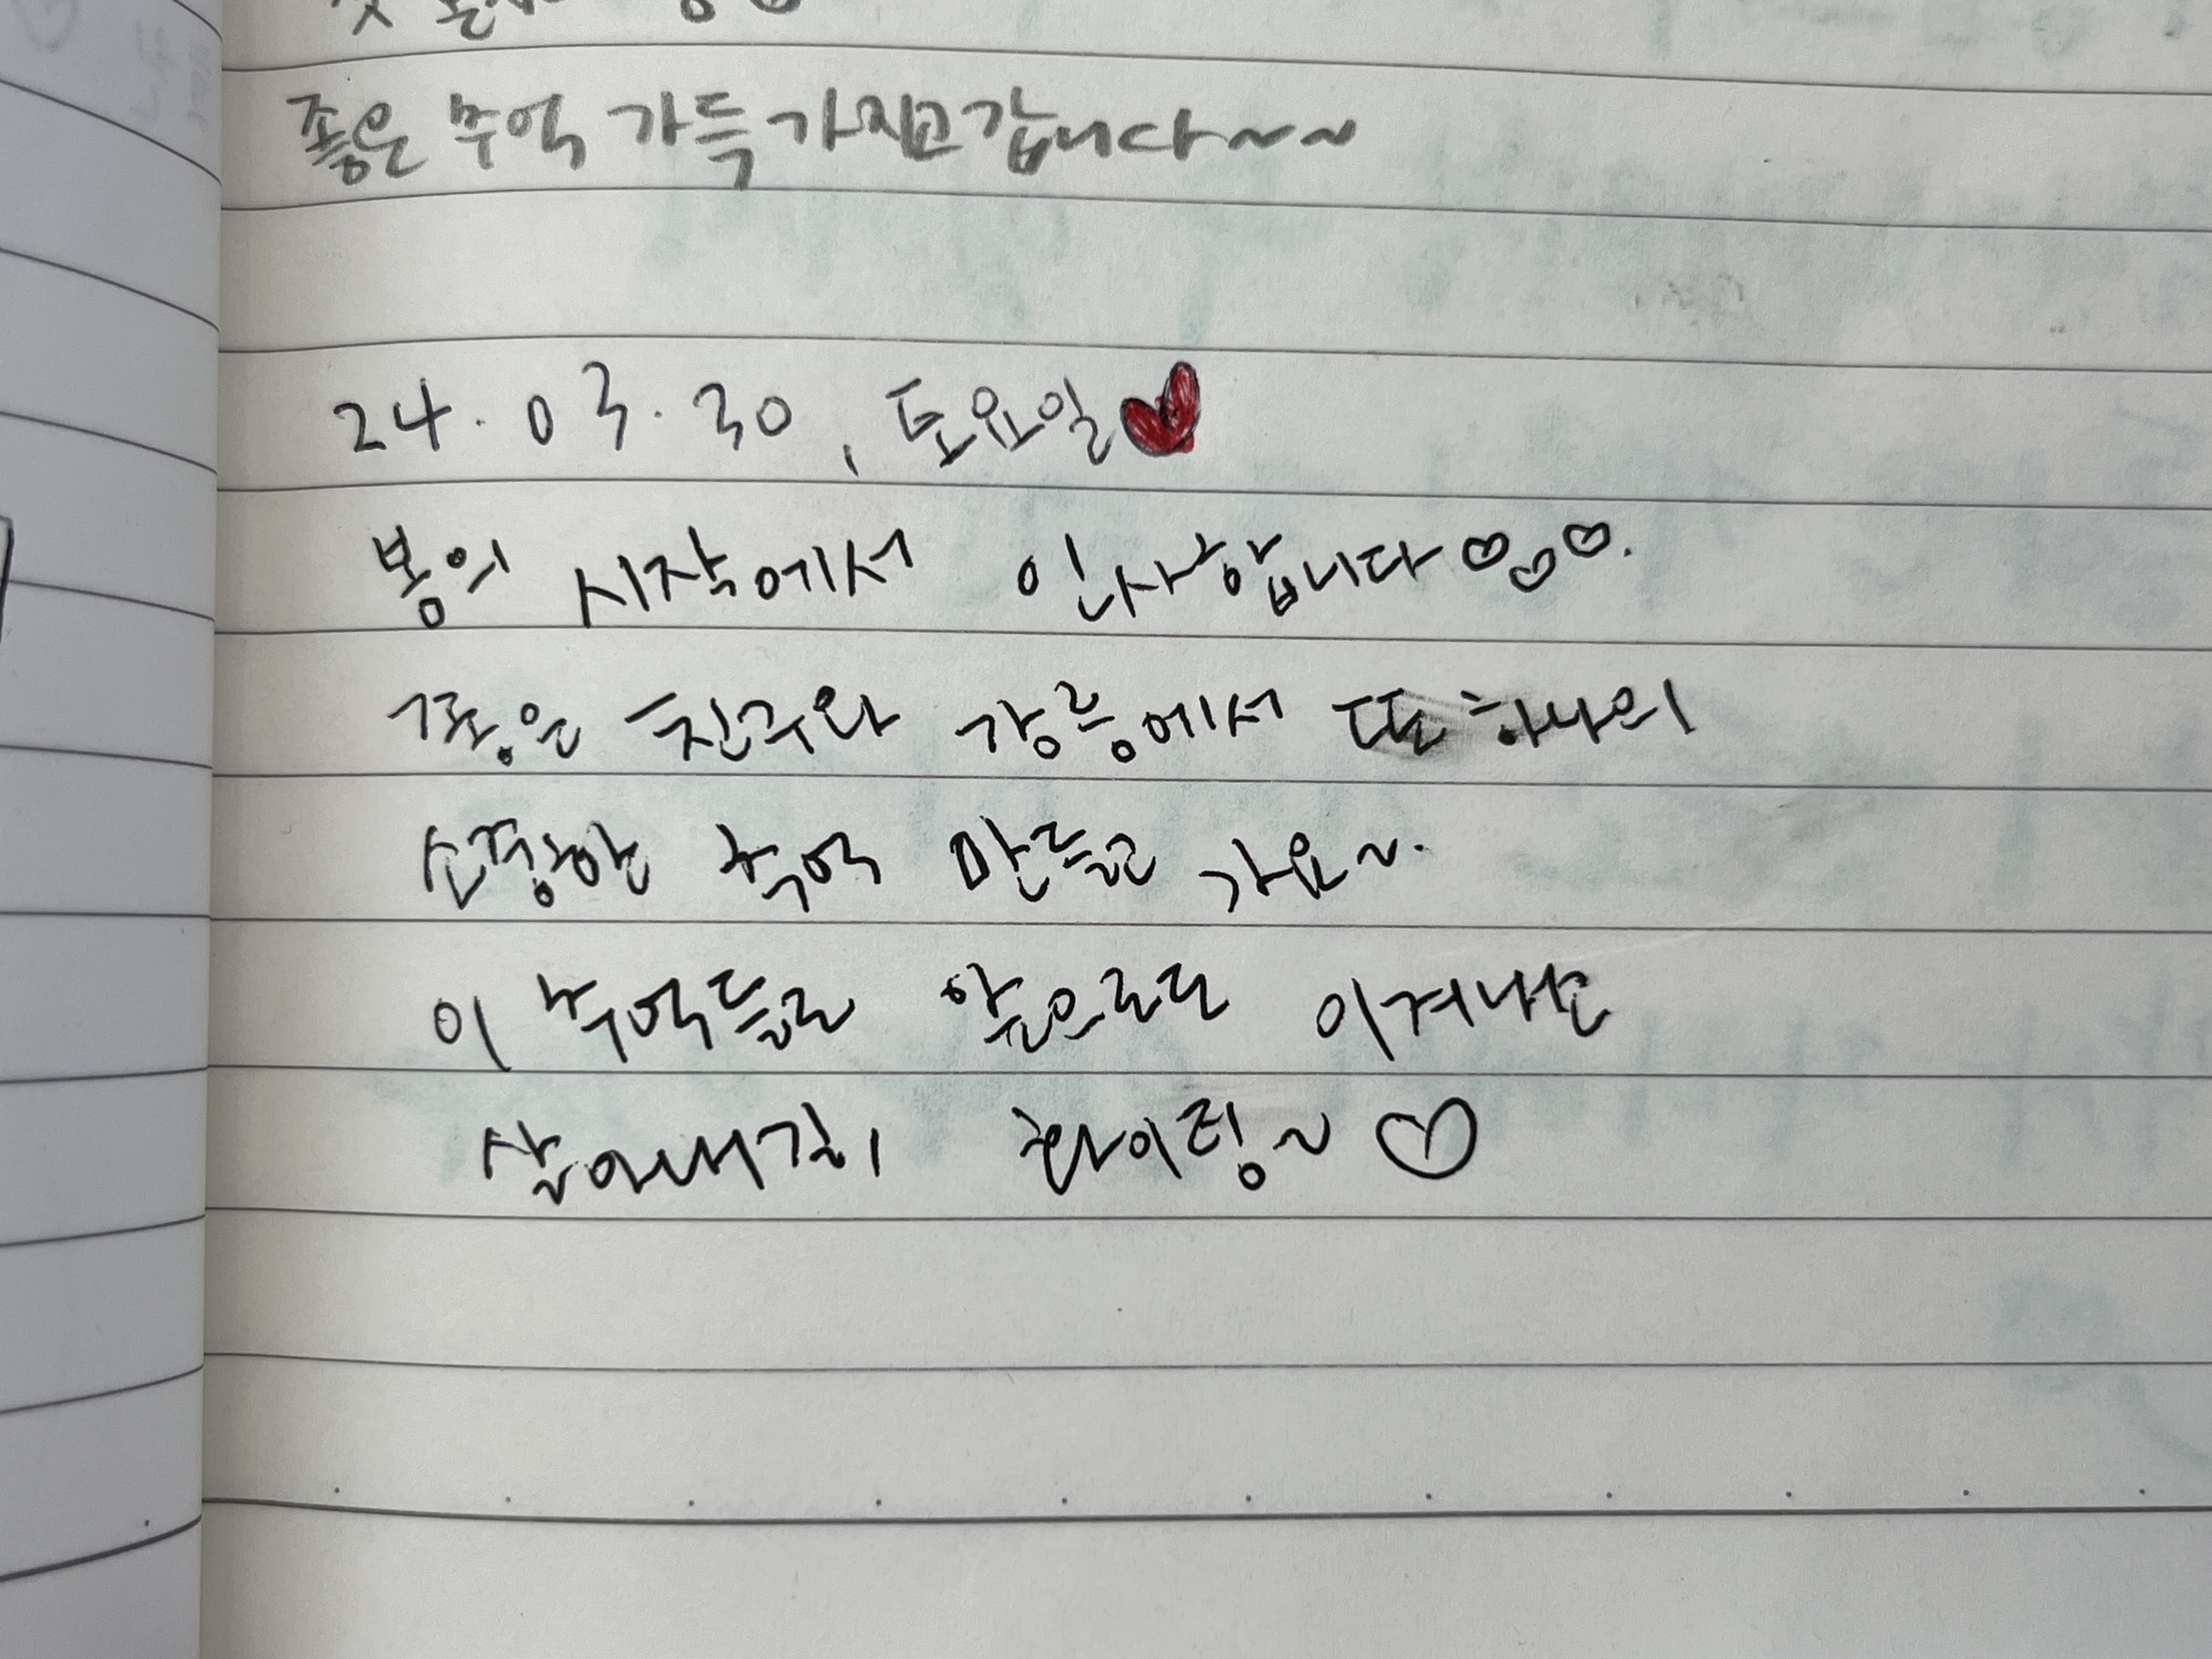 좋은 추억 가득 가지고 갑니다~~
24.03.30, 토요일♥
봄의 시작에서 인사합니다♡♡♡.
좋은 친구와 강릉에서 또 하나의
소중한 추억 만들고 가요~.
이 추억들로 앞으로도 이겨나고
살아내길! 화이링~♡